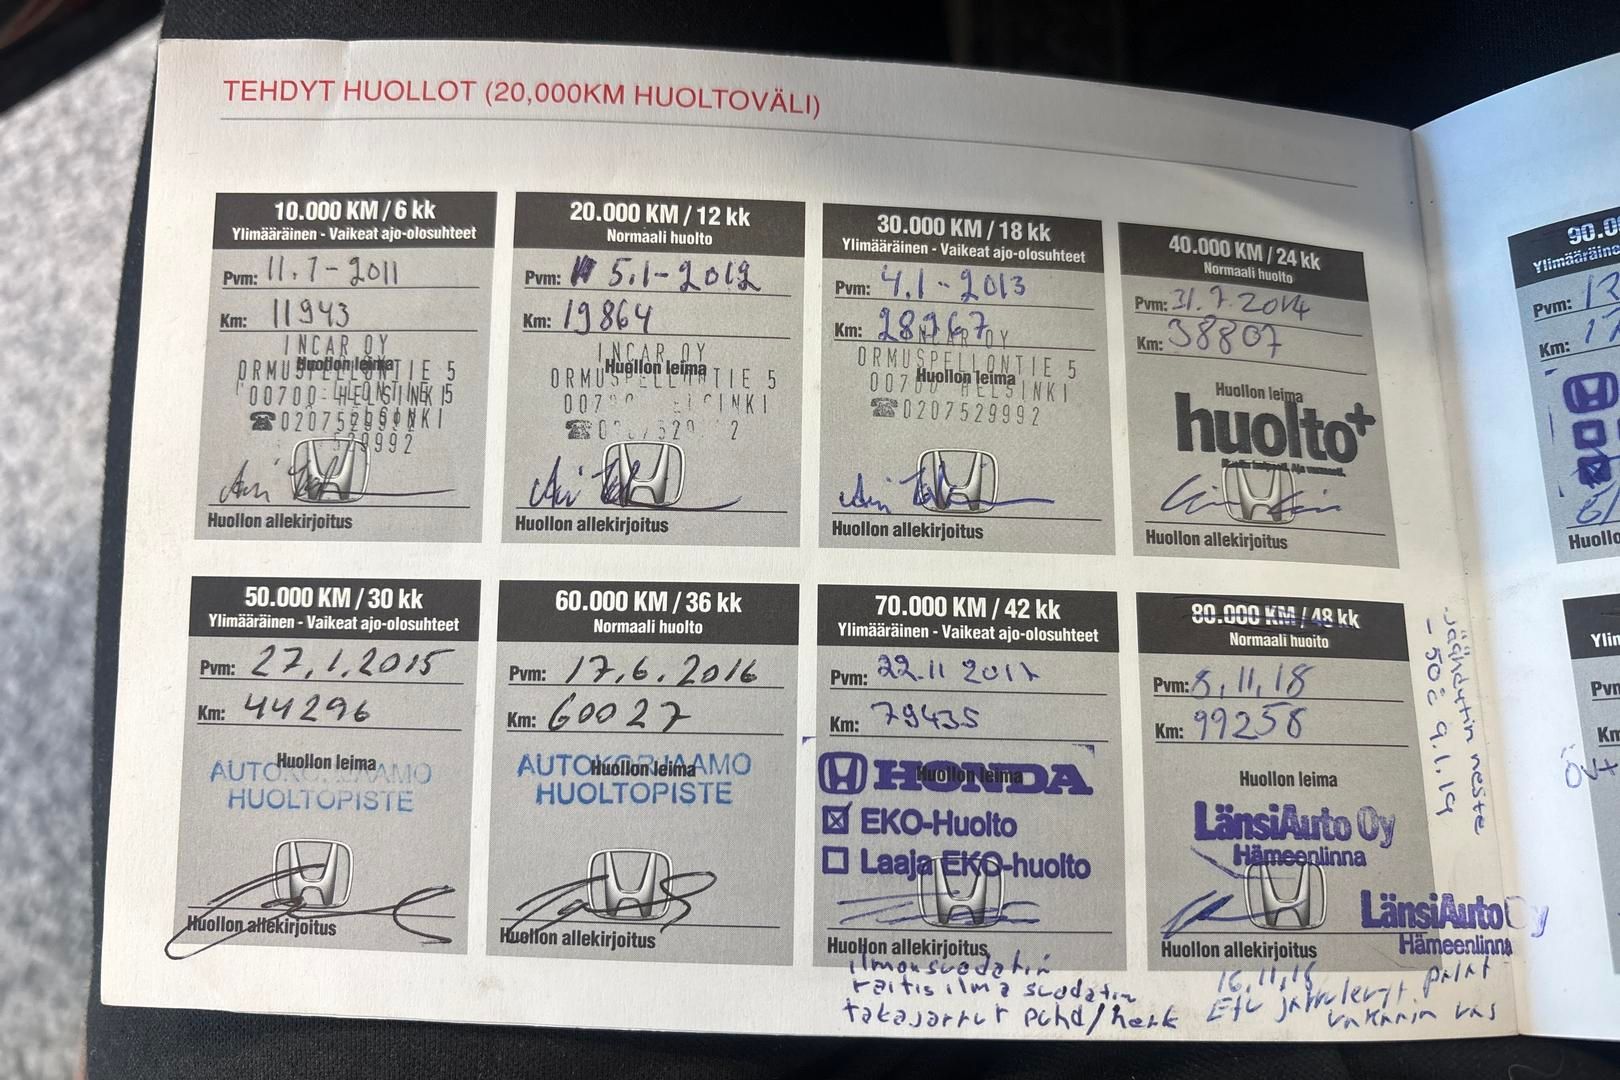 TEHDYT HUOLLOT (20,000KM HUOLTOVÄLI)
10.000 KM / 6 kk
Ylimääräinen - Vaikeat ajo-olosuhteet
Pvm: 11.7-2011
Km: 11943
INCAR OY
Huollon leima
ORMUSPELLONTIE 5
00700 HELSINKI
☎0207529992
Huollon allekirjoitus
20.000 KM / 12 kk
Normaali huolto
Pvm: 5.1-2012
Km: 19864
INCAR OY
Huollon leima
ORMUSPELLONTIE 5
Huollon allekirjoitus
30.000 KM / 18 kk
Ylimääräinen - Vaikeat ajo-olosuhteet
Pvm: 4.1-2013
Km: 28267
INCAR OY
ORMUSPELLONTIE 5
Huollon leima
00700 HELSINKI
☎0207529992
Huollon allekirjoitus
40.000 KM / 24 kk
Normaali huolto
Pvm: 31.7.2014
Km: 38807
Huollon leima
huolto+
Huollon allekirjoitus
50.000 KM / 30 kk
Ylimääräinen - Vaikeat ajo-olosuhteet
Pvm: 27.1.2015
Km: 44296
Huollon leima
AUTOKORJAAMO
HUOLTOPISTE
Huollon allekirjoitus
60.000 KM / 36 kk
Normaali huolto
Pvm: 17.6.2016
Km: 60027
Huollon leima
AUTOKORJAAMO
HUOLTOPISTE
Huollon allekirjoitus
70.000 KM / 42 kk
Ylimääräinen - Vaikeat ajo-olosuhteet
Pvm: 22.11 2017
Km: 79435
Huollon leima
HONDA
EKO-Huolto
Laaja EKO-huolto
Huollon allekirjoitus
ilmansuodatin
raitis ilma suodatin
takajarrut puhd/herk
80.000 KM / 48 kk
Normaali huolto
Pvm: 8.11.18
Km: 99258
Huollon leima
LänsiAuto Oy
Hämeenlinna
Huollon allekirjoitus
LänsiAuto Oy
Hämeenlinna
16.11.18
Etu jarrulevyt. palat
Jäähdyttin neste
-50c 9.1.19
90.0
Ylimääräine
Pvm:
Km:
Huollo
Ylin
Pvn
Km